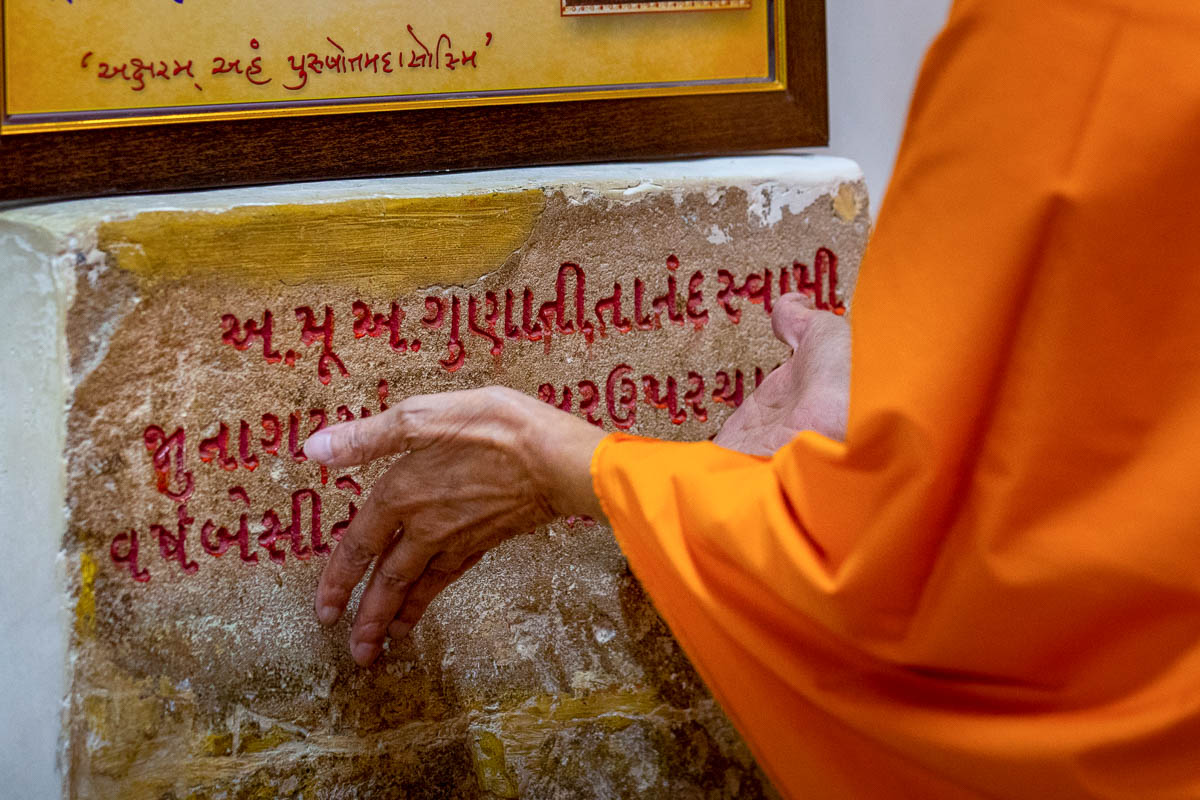 ‘અક્ષરમ્ અહં પુરુષોત્તમદાસોસ્મિ’
અ.મૂ.અ.ગુણાતીતાનંદ સ્વામી
જુનાગઢમાં થર ઉપર ચા
વર્ષ બેસીને